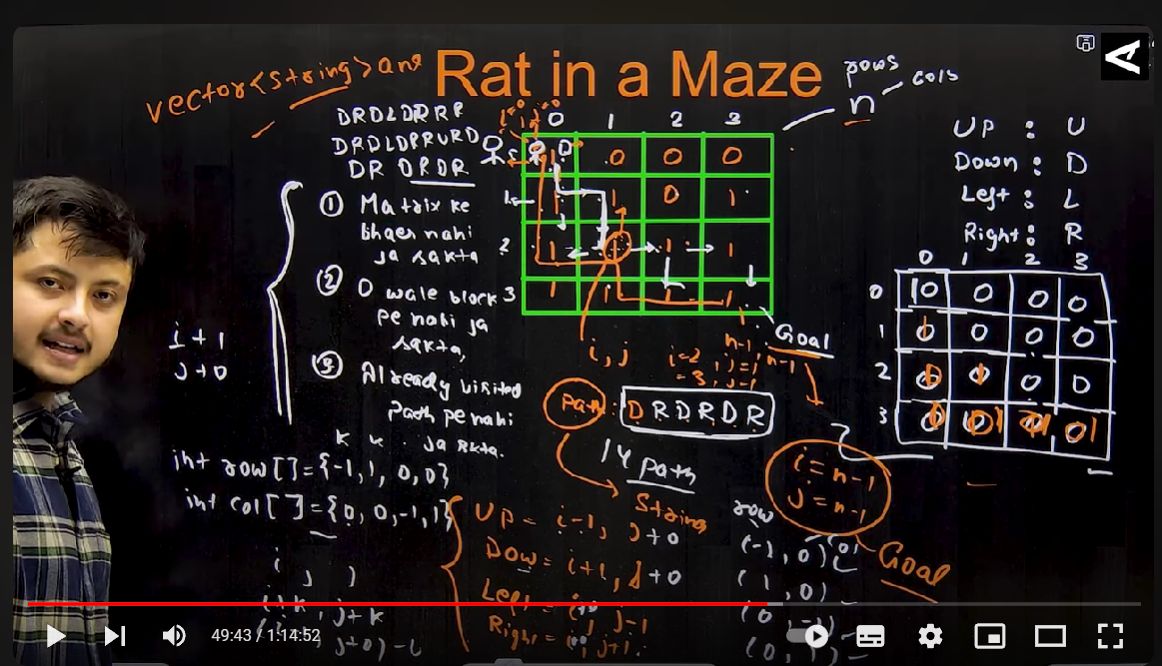 Rat in a Maze
vector<string> ans
rows
n
cols
DRDLDRRR
DRDLDRRURD
DR DRDR
① Matrix ke
bhaer nahi
ja sakta
② 0 wale block
pe nahi ja
sakta,
③ Already visited
path pe nahi
ja skta.
i+1
j+0
int row[]={-1,1,0,0}
int col[]={0,0,-1,1}
0 1 2 3
1 0 0 0
1 1 1 0 1
2 1 1 1 1
3 1 1 1 1
i,j
n-1, n-1
Goal
Path: DRDRDR
14 Path
String
UP : U
Down : D
Left : L
Right : R
0 1 2 3
0 0 0 0
1 0 0 0
2 0 0
3
i=n-1
j=n-1
Goal
UP = i-1, j+0
Dow = i+1, j+0
Left = j-1
Right = j+1
row
(-1,0)
(1,0)
i j
i+k, j+k
49:43 / 1:14:52